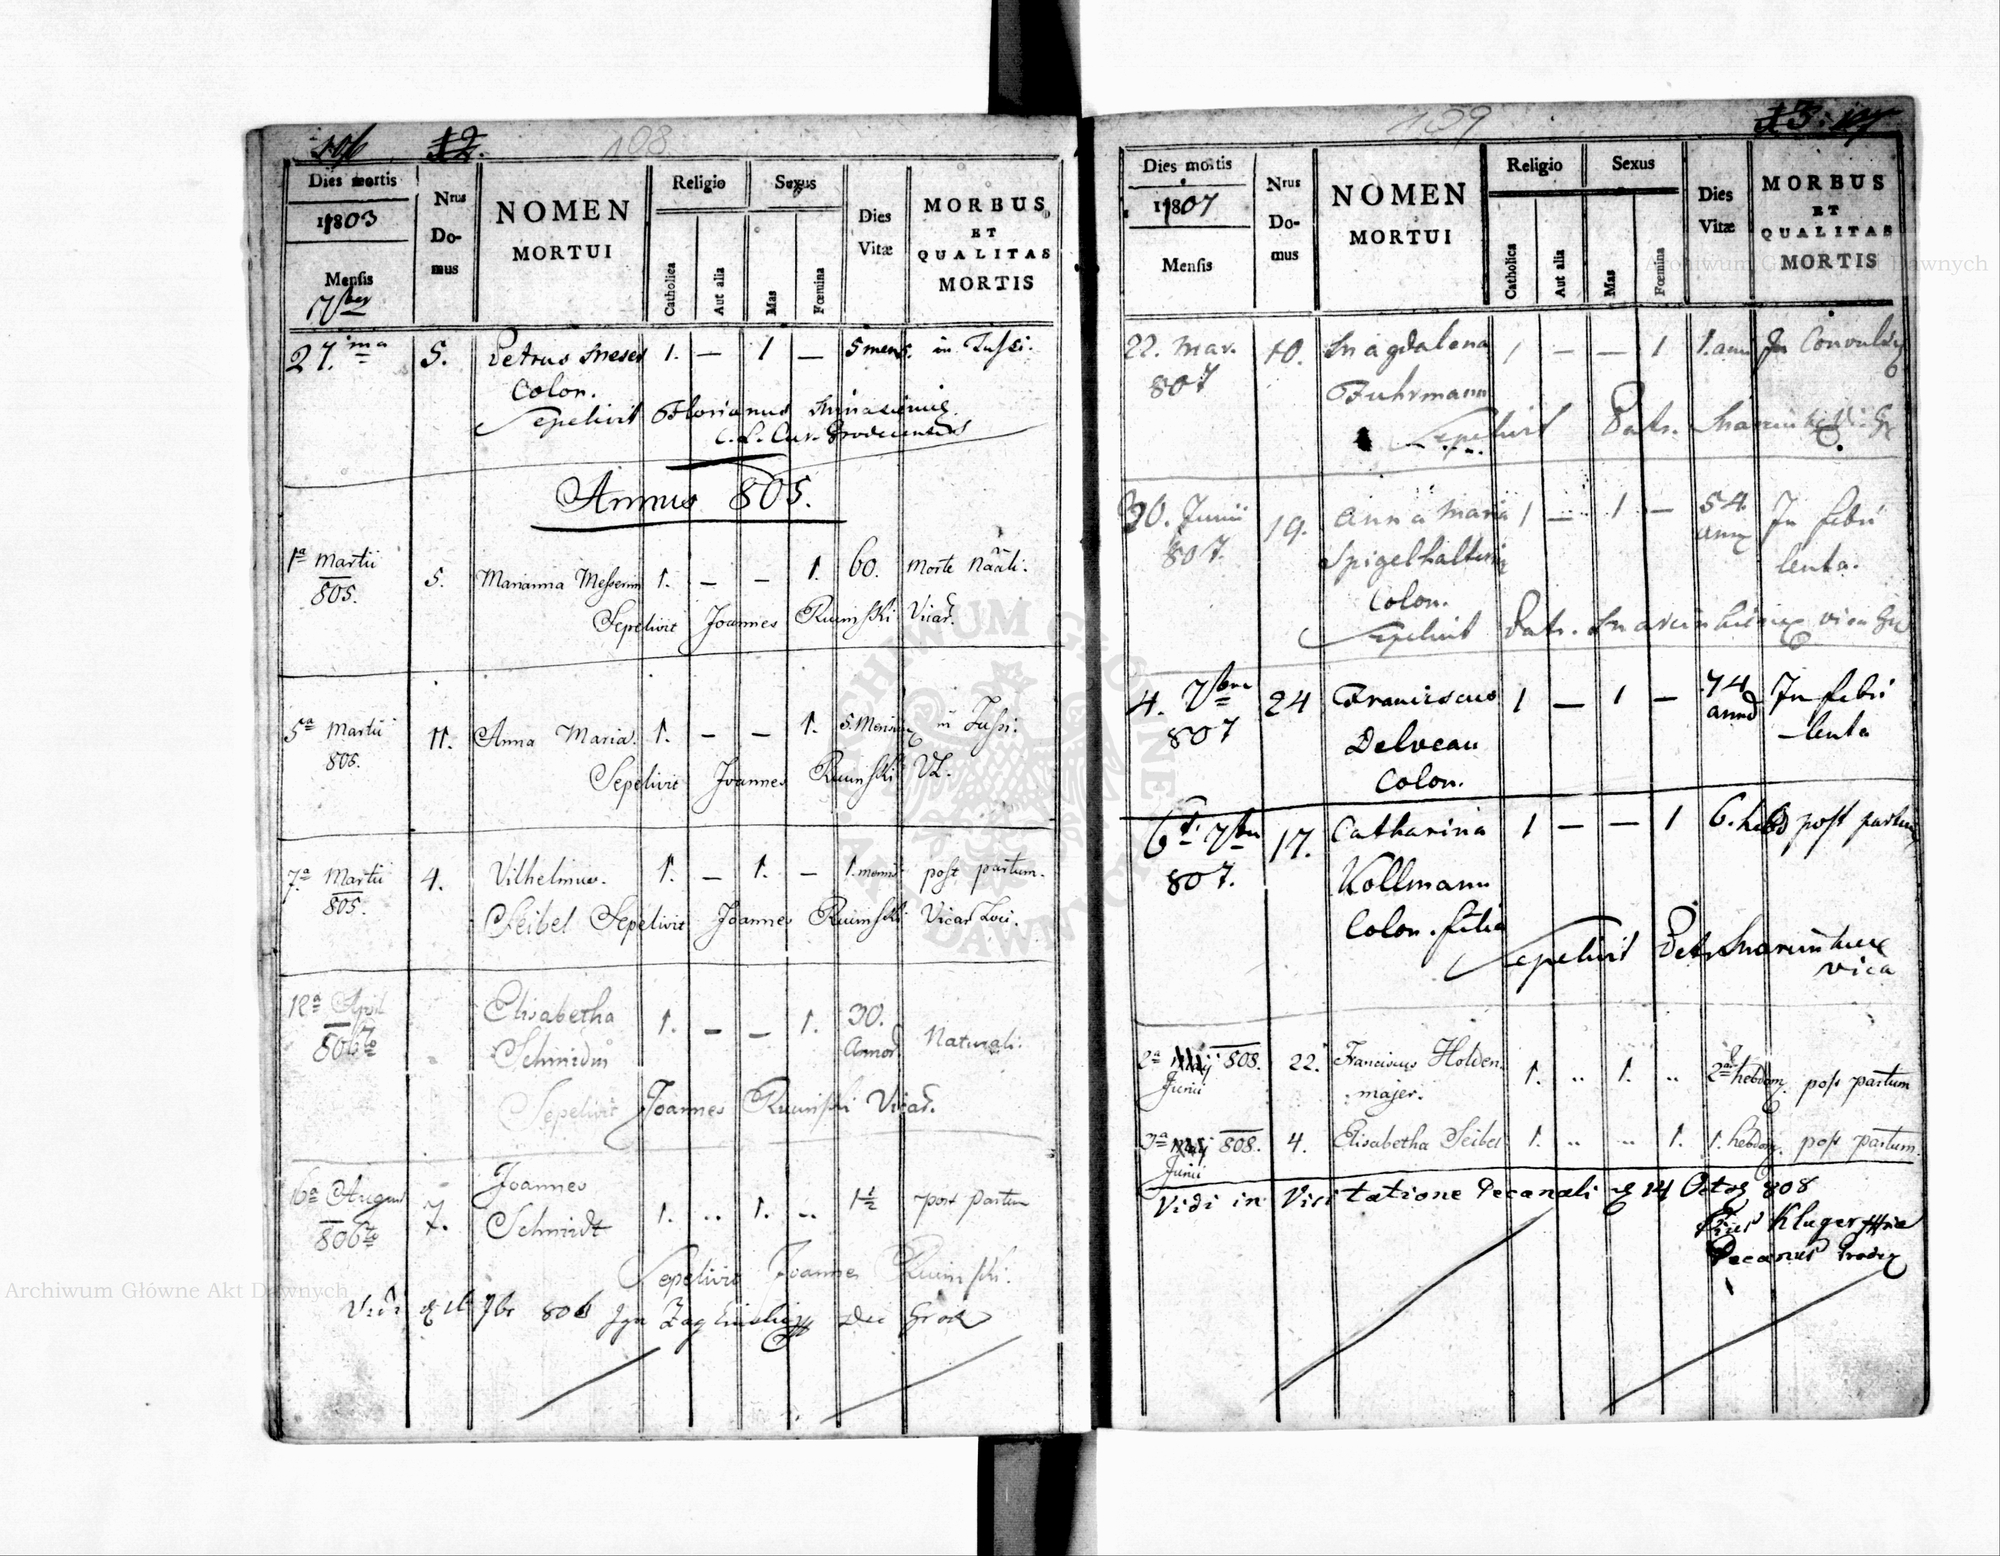 106 12.
108
Dies mortis
1803
Mensis
7ber
Nrus
Do-
mus
NOMEN
MORTUI
Religio
Catholica
Aut alia
Sexus
Mas
Fœmina
Dies
Vitæ
MORBUS
ET
QUALITAS
MORTIS
27.ma 5. Petrus Meser 1. — 1 — 5 mens. in Tussi.
Colon.
Sepelivit Florianus
C. L. Cur. Grodecensis
Annus 805.
1a Martii 5. Marianna Messerin 1. — — 1. 60. Morte Naâli.
805.
Sepelivit Joannes Ruinski Vicar.
5a Martii 11. Anna Maria. 1. — — 1. 5. Mensium in Tussi.
805.
Sepelivit Joannes Ruinski VL.
7a Martii 4. Vilhelmus. 1. — 1. — 1. mensis post partum.
805.
Seibel Sepelivit Joannes Ruinski Vicar Loci.
12a April Elisabetha 1. — — 1. 30. Naturali.
806to Schmidin Annor.
Sepelivit Joannes Ruinski Vicar.
16a August 7. Joannes 1. .. 1. .. 1½ post partum
806to Schmidt
Sepelivit Joannes Ruinski.
Vidi d 16 7br 806 Dec Grod
109
13.
Dies mortis
1807
Mensis
Nrus
Do-
mus
NOMEN
MORTUI
Religio
Catholica
Aut alia
Sexus
Mas
Fœmina
Dies
Vitæ
MORBUS
ET
QUALITAS
MORTIS
22. Mar. 10. Magdalena 1 — — 1 1. ann In Convuls
807 Fuhrmann
Sepelivit Petr.
30. Junii 19. Anna Maria 1 — 1 — 54. In febri
807. Spigelhalterin anni lenta.
Colon.
Sepelivit Petr.
4. 7bre 24 Franciscus 1 — 1 — 74 In febri
807 Delveau annor lenta
Colon.
6ti 7bre 17. Catharina 1 — — 1 6. hebd post partum
807. Kollmann
Colon. filia
Sepelivit Petr
Vica
2a Maij 808. 22. Franciscus Holden 1. .. 1. .. 2a hebdom. post partum
Junii majer.
3a Maij 808. 4. Elisabetha Seibel 1. .. .. 1. 1. hebdom. post partum.
Junii
Vidi in Visitatione Decanali d 14 Octob 808
Pius Kluger
Decanus Grodec
Archiwum Główne Akt Dawnych
Archiwum Główne Akt Dawnych
ARCHIWUM GŁÓWNE AKT DAWNYCH